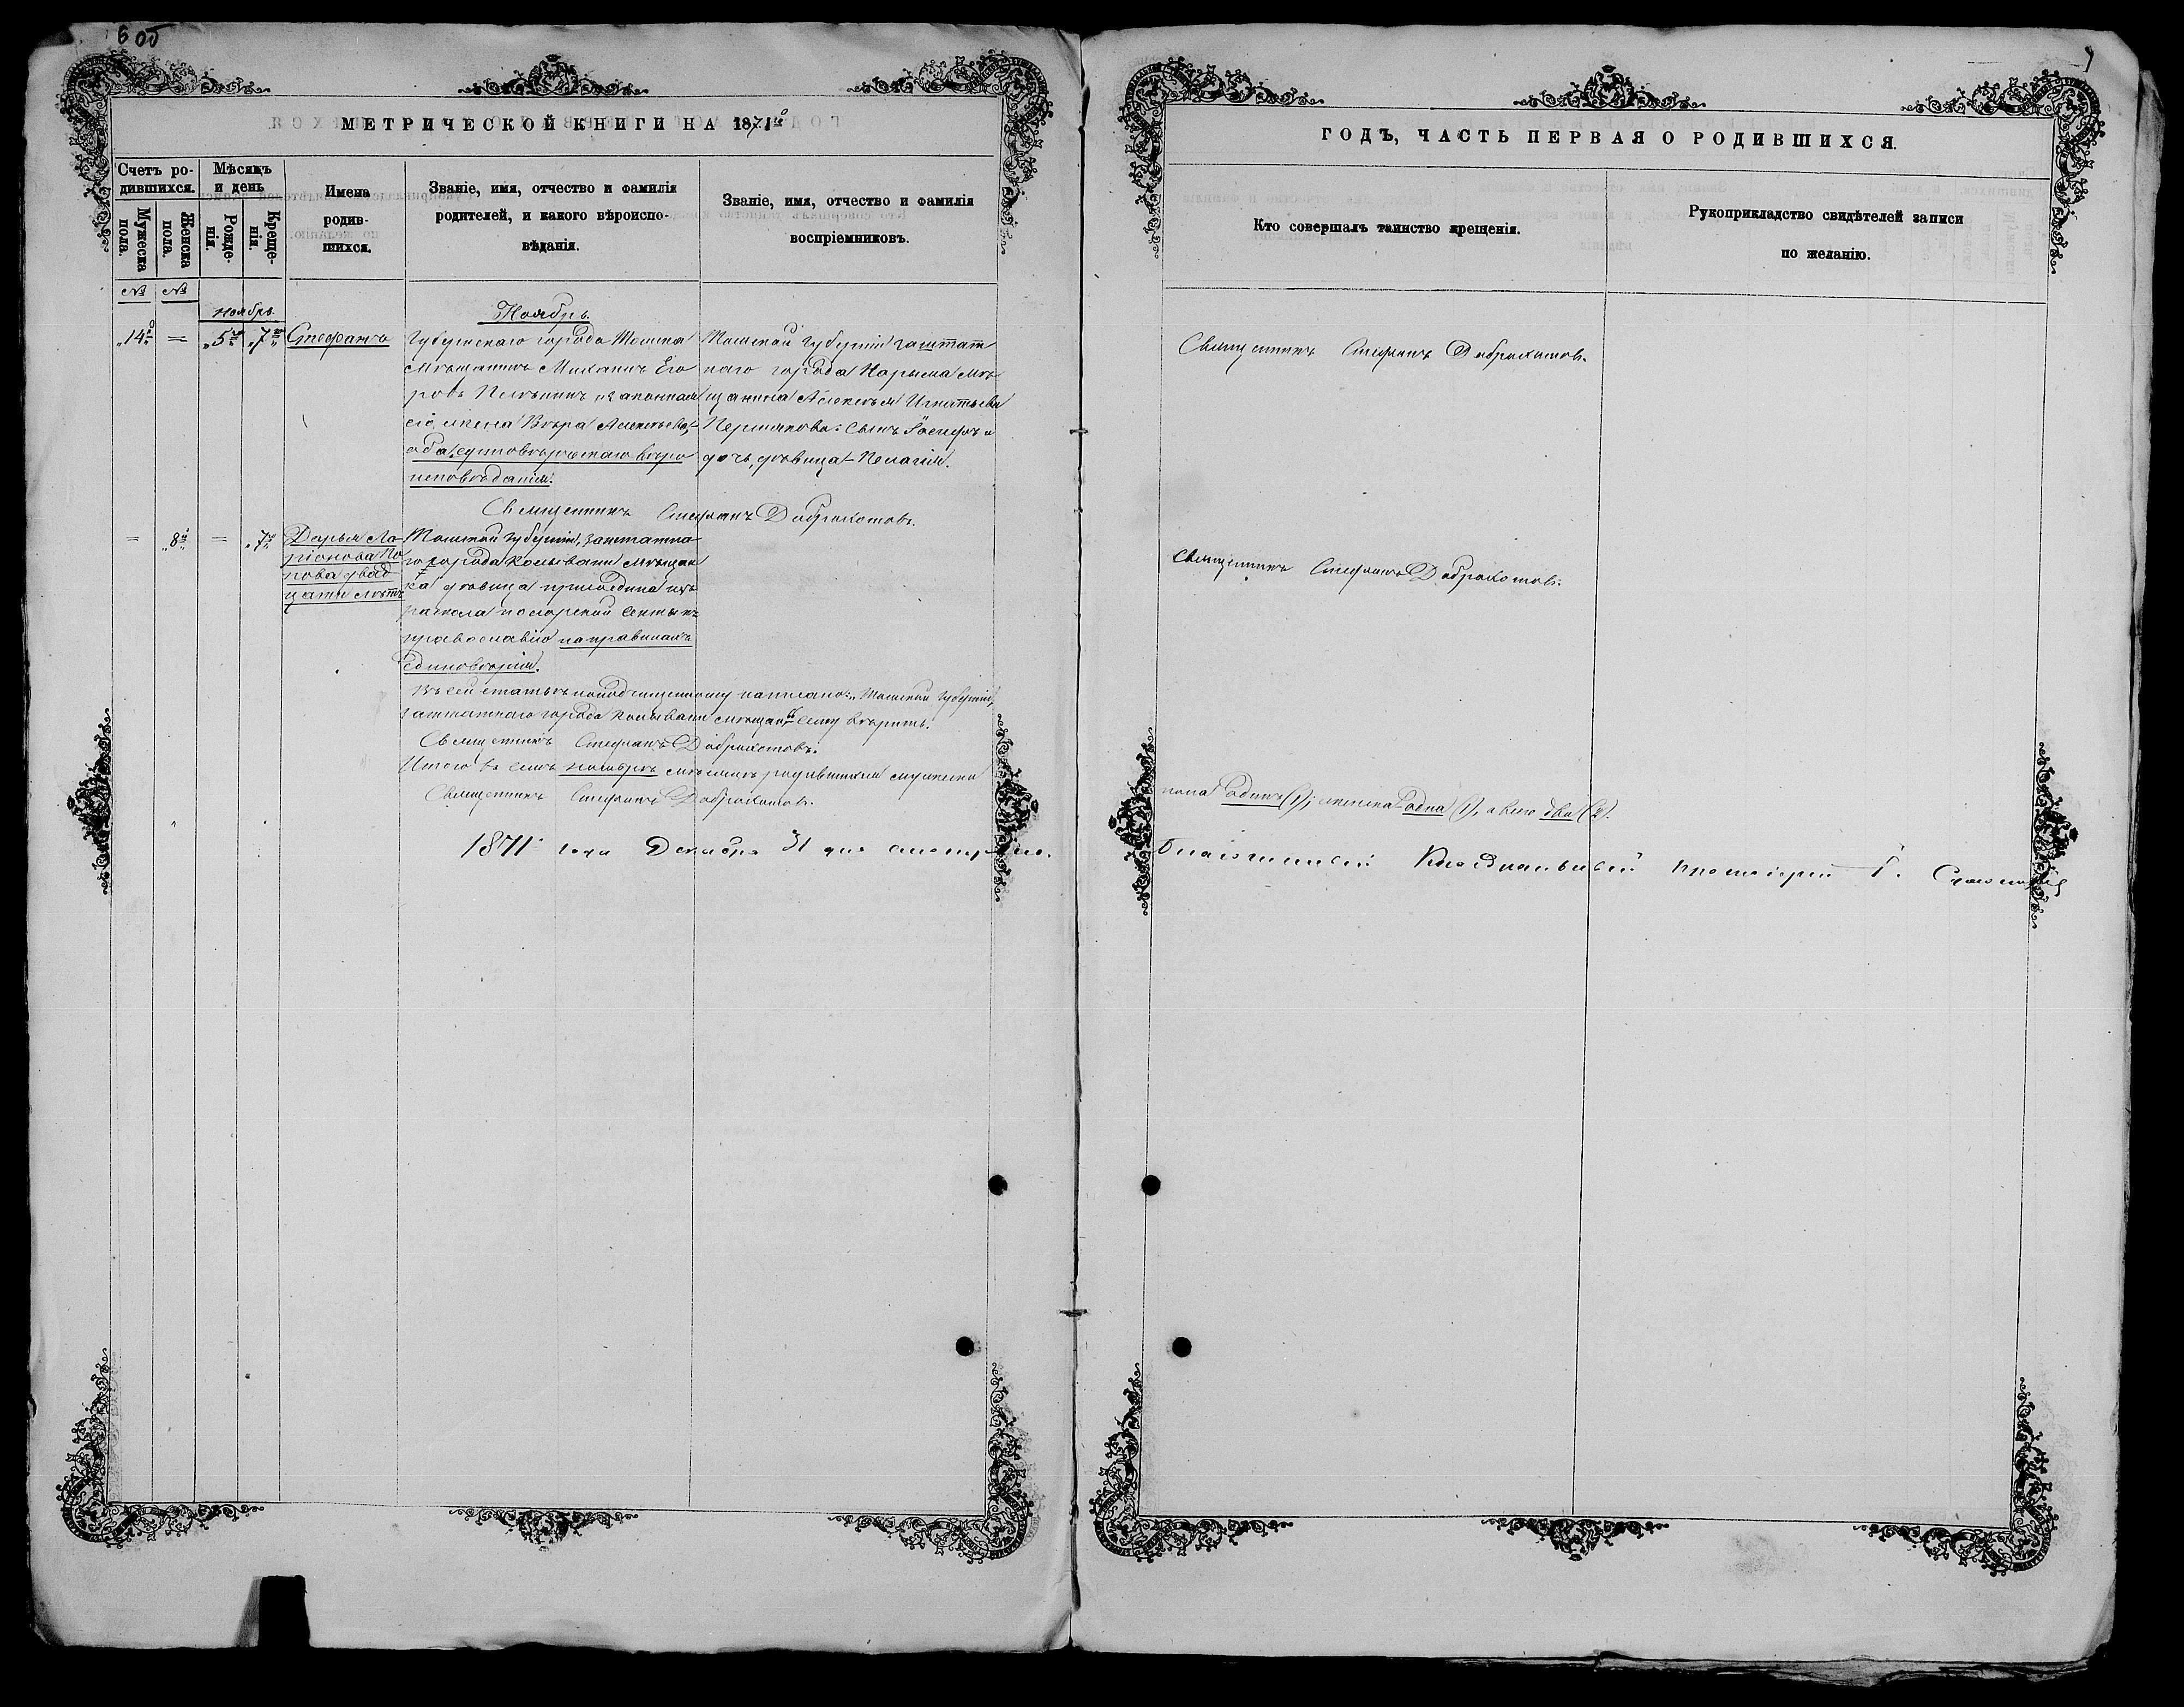 6 об
МЕТРИЧЕСКОЙ КНИГИ НА 1871й
Счетъ родившихся.
Мужеска пола.
Женска пола.
Мѣсяцъ и день
Рожденія.
Крещенія.
Имена родившихся.
Званіе, имя, отчество и фамилія
родителей, и какого вѣроиспо-
вѣданія.
Званіе, имя, отчество и фамилія
воспріемниковъ.
№ №
ноябрь.
Ноябрь.
„14й = „5го „7го Стефанъ
Губернскаго города Томска
мѣщанинъ Михаилъ Его
ровъ и законная
его жена Вѣра Алексѣева,
оба единовѣрческаго вѣро
исповѣданія.
Томской губерніи заштат
наго города Нарыма мѣ
щанина Алексѣя Игнатьева
Пермякова: сынъ Іосифъ и
дочь, дѣвица Пелагія.
Священникъ Стефанъ Доброхотовъ.
= „8й = „7го
Дарья Ла-
ріонова По
пова двад
цати лѣтъ
Томской губерніи, заштатна
го города Колывани мѣщан
ка дѣвица присоединена изъ
раскола поморской секты къ
православію по правиламъ
единовѣрія.
Въ сей статьѣ по подчищенному написано: „Томской губерніи,
заштатнаго города Колывани мѣщан" сему вѣрить.
Священникъ Стефанъ Доброхотовъ.
Итого въ семъ ноябрѣ мѣсяцѣ родившихся мужеска
Священникъ Стефанъ Доброхотовъ.
1871 года Декабря 31 дня
ГОДЪ, ЧАСТЬ ПЕРВАЯ О РОДИВШИХСЯ.
Кто совершалъ таинство крещенія.
Рукоприкладство свидѣтелей записи
по желанію.
Священникъ Стефанъ Доброхотовъ.
Священникъ Стефанъ Доброхотовъ.
пола одинъ (1), женска одна (1), а всего два (2).
Благочинный протоіерей І.